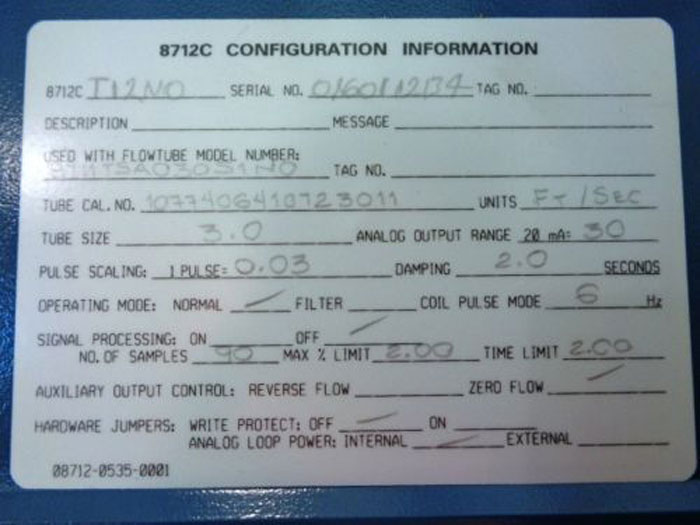 8712C CONFIGURATION INFORMATION
8712C T12N0 SERIAL NO. TAG NO.
DESCRIPTION MESSAGE
USED WITH FLOWTUBE MODEL NUMBER:
TAG NO.
TUBE CAL. NO. 1077406410723011 UNITS FT/SEC
TUBE SIZE 3.0 ANALOG OUTPUT RANGE 20 mA= 30
PULSE SCALING: 1 PULSE= 0.03 DAMPING 2.0 SECONDS
OPERATING MODE: NORMAL FILTER COIL PULSE MODE 6 Hz
SIGNAL PROCESSING: ON OFF
NO. OF SAMPLES 90 MAX % LIMIT 2.00 TIME LIMIT 2.00
AUXILIARY OUTPUT CONTROL: REVERSE FLOW ZERO FLOW
HARDWARE JUMPERS: WRITE PROTECT: OFF ON
ANALOG LOOP POWER: INTERNAL EXTERNAL
08712-0535-0001